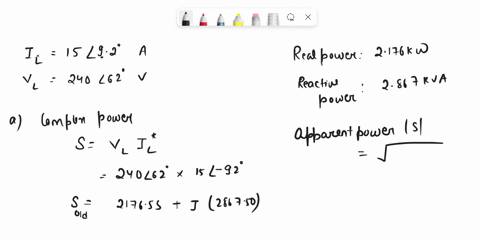 I_L = 15∠9.2° A
V_L = 240∠62° V
a) Complex power
S = V_L I_L*
= 240∠62° × 15∠-9.2°
S_old = 2176.55 + J (2867.50)
Real power: 2.176kW
Reactive power: 2.867 KVA
Apparent power |S|
= √